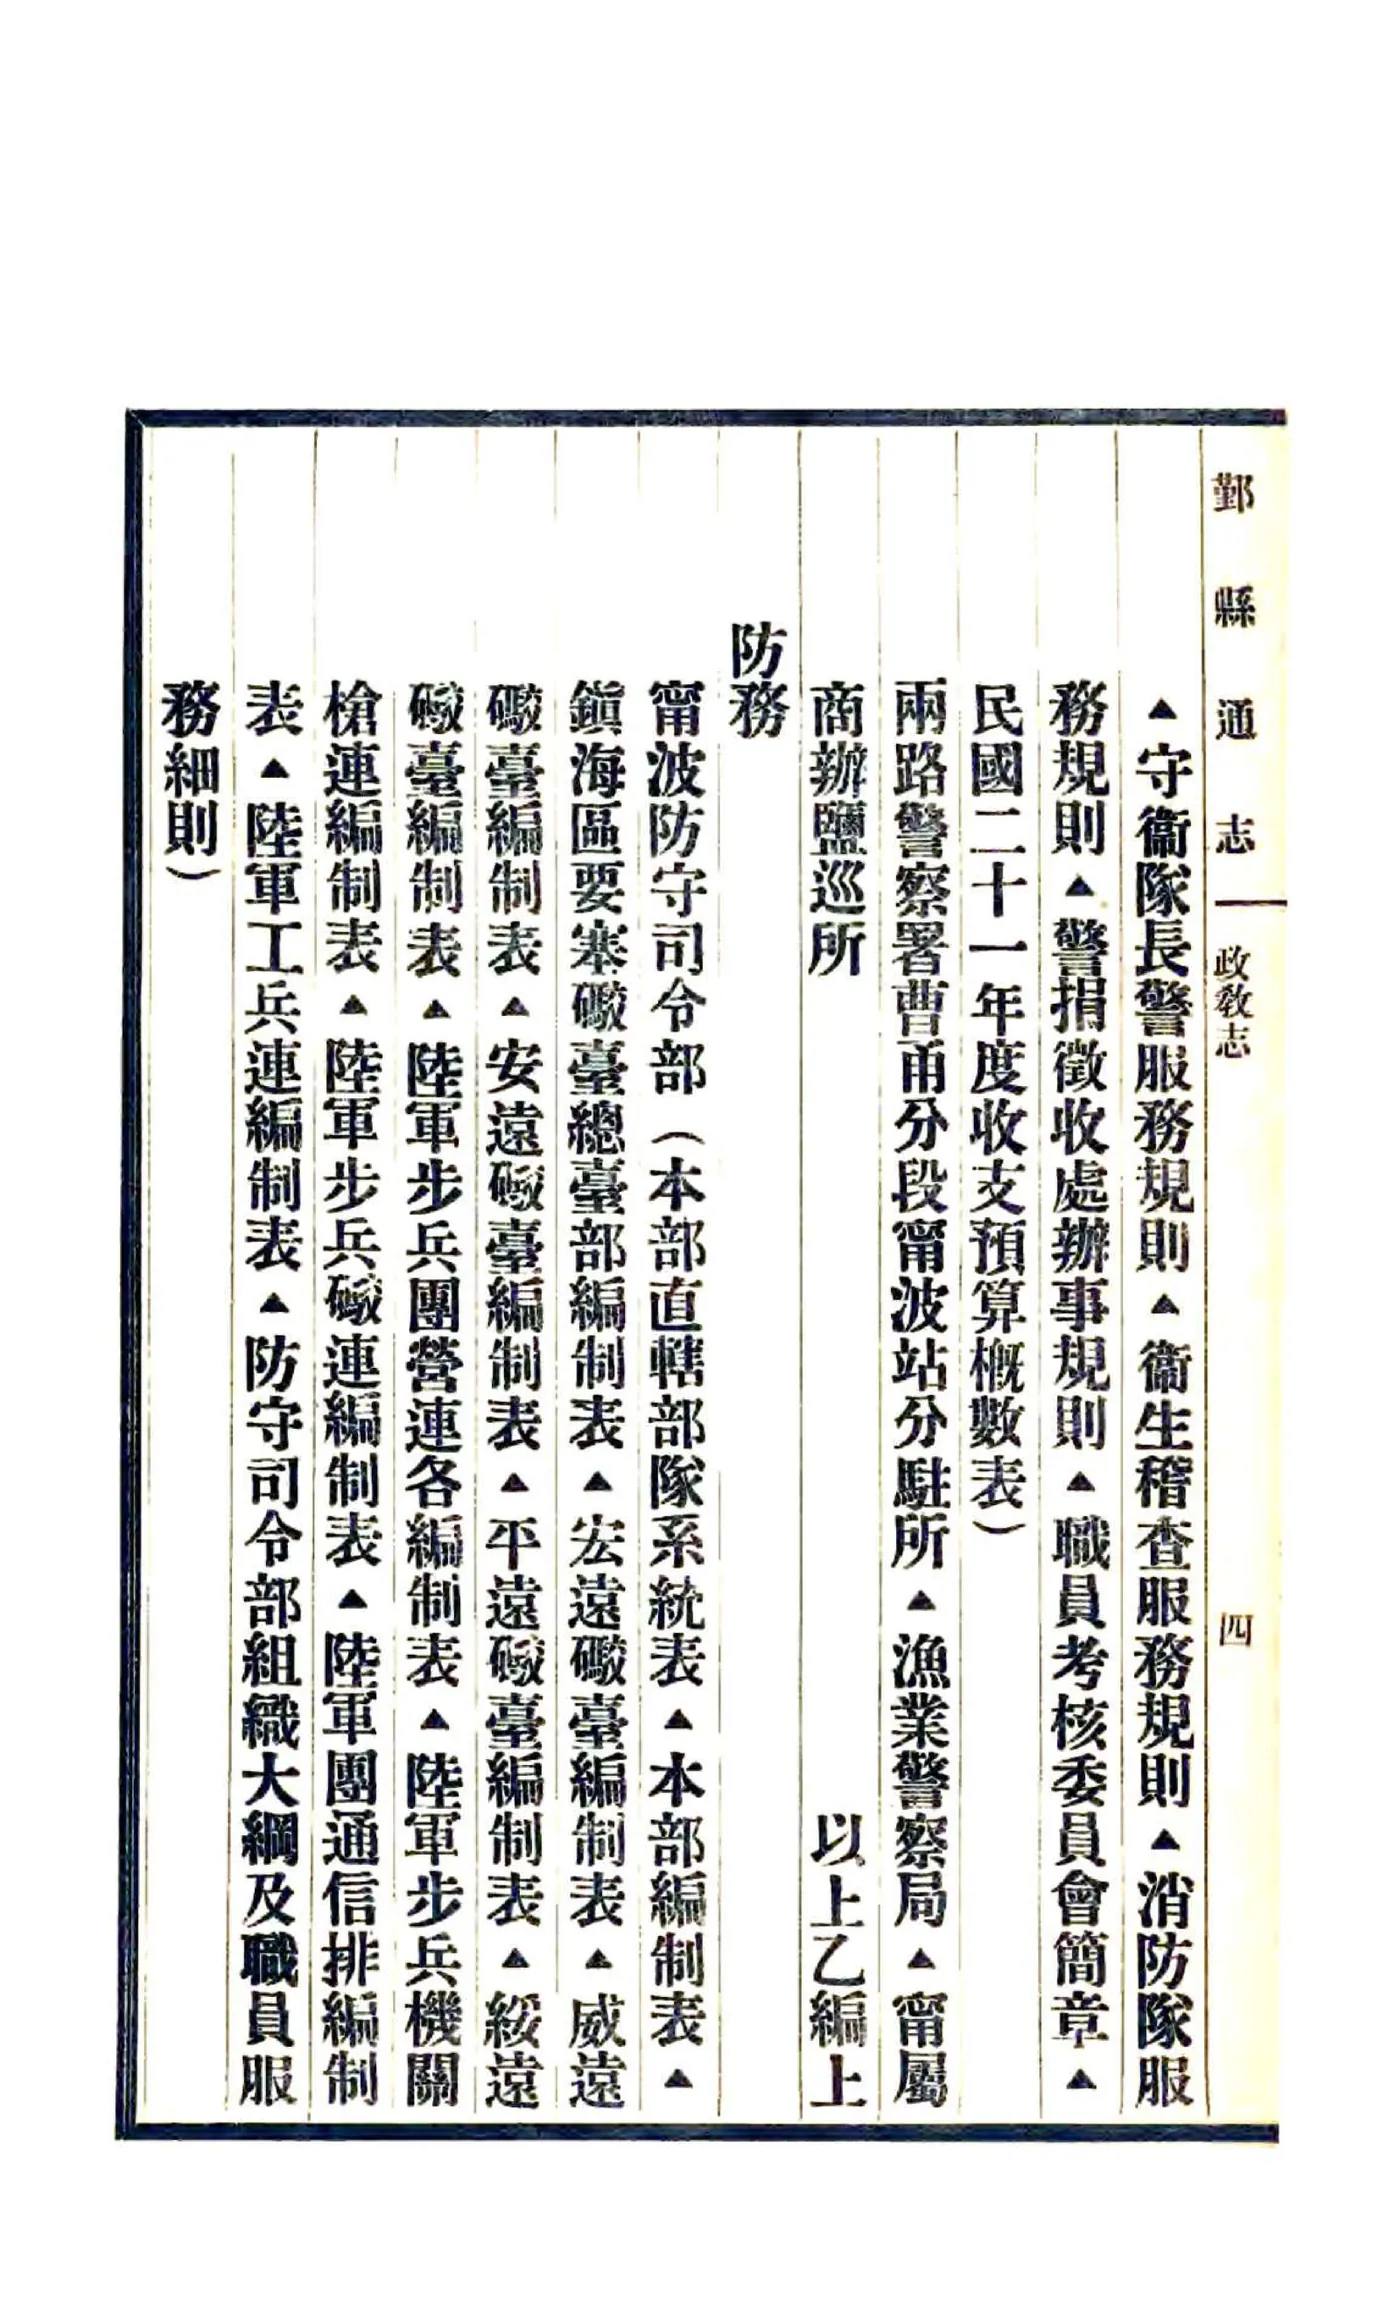 鄞縣通志 政敎志 四
▲守衞隊長警服務規則▲衞生稽查服務規則▲消防隊服
務規則▲警捐徵收處辦事規則▲職員考核委員會簡章▲
民國二十一年度收支預算概數表）
兩路警察署曹甬分段甯波站分駐所▲漁業警察局▲甯屬
商辦鹽巡所 以上乙編上
防務
甯波防守司令部（本部直轄部隊系統表▲本部編制表▲
鎭海區要塞礮臺總臺部編制表▲宏遠礮臺編制表▲威遠
礮臺編制表▲安遠礮臺編制表▲平遠礮臺編制表▲綏遠
礮臺編制表▲陸軍步兵團營連各編制表▲陸軍步兵機關
槍連編制表▲陸軍步兵礮連編制表▲陸軍團通信排編制
表▲陸軍工兵連編制表▲防守司令部組織大綱及職員服
務細則）